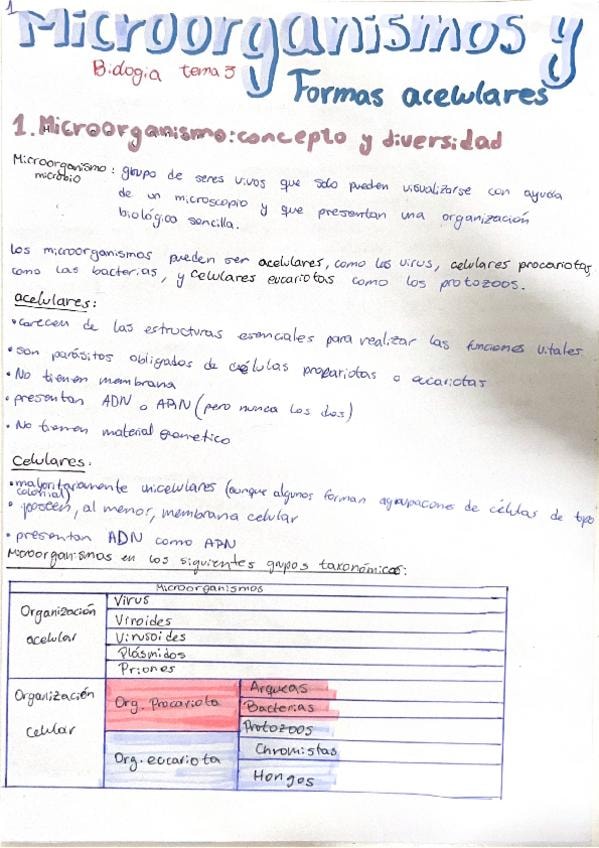 1
Microorganismos y
Biología tema 3
Formas acelulares
1. Microorganismo: concepto y diversidad
Microorganismo: grupo de seres vivos que solo pueden visualizarse con ayuda
microbio
de un microscopio y que presentan una organización
biológica sencilla.
Los microorganismos pueden ser acelulares, como los virus, celulares procariotas,
como las bacterias, y celulares eucariotas como los protozoos.
acelulares:
• carecen de las estructuras esenciales para realizar las funciones vitales
• son parásitos obligados de células procariotas o eucariotas
• No tienen membrana
• presentan ADN o ARN (pero nunca los dos)
• No tienen material genetico
Celulares.
• mayoritariamente unicelulares (aunque algunos forman agrupacones de células de tipo
colonial)
• poseen, al menor, membrana celular
• presentan ADN como ARN
Microorganismos en los siguientes grupos taxonómicos:
Microorganismos
Organización
acelular
Virus
Viroides
Virusoides
Plásmidos
Priones
Organización
celular
Org. Procariota
Arqueas
Bacterias
Org. eucariota
Protozoos
Chromistas
Hongos